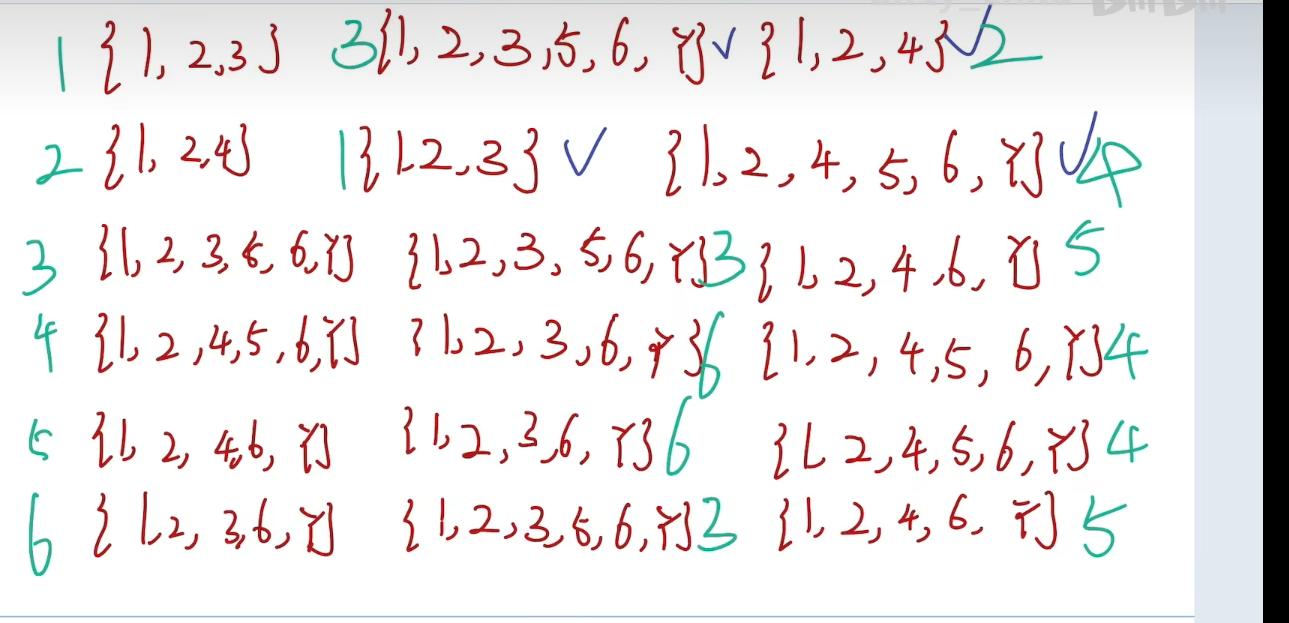 1 {1, 2,3} 3{1, 2,3,5,6, Y}✓ {1,2,4}✓2
2 {1, 2,4} 1{1.2.3}✓ {1.2,4,5,6,Y}✓4
3 {1, 2, 3,5, 6,Y} {1.2,3, 5,6,Y}3 {1, 2,4,6, Y} 5
4 {1, 2,4,5,6,Y} {1,2,3,6,Y}6 {1,2,4,5,6,Y}4
5 {1, 2, 4,6, Y} {1,2,3,6, Y}6 {1, 2,4,5,6,Y}4
6 {1,2, 3,6,Y} {1,2,3,5,6,Y}3 {1, 2, 4, 6, Y} 5